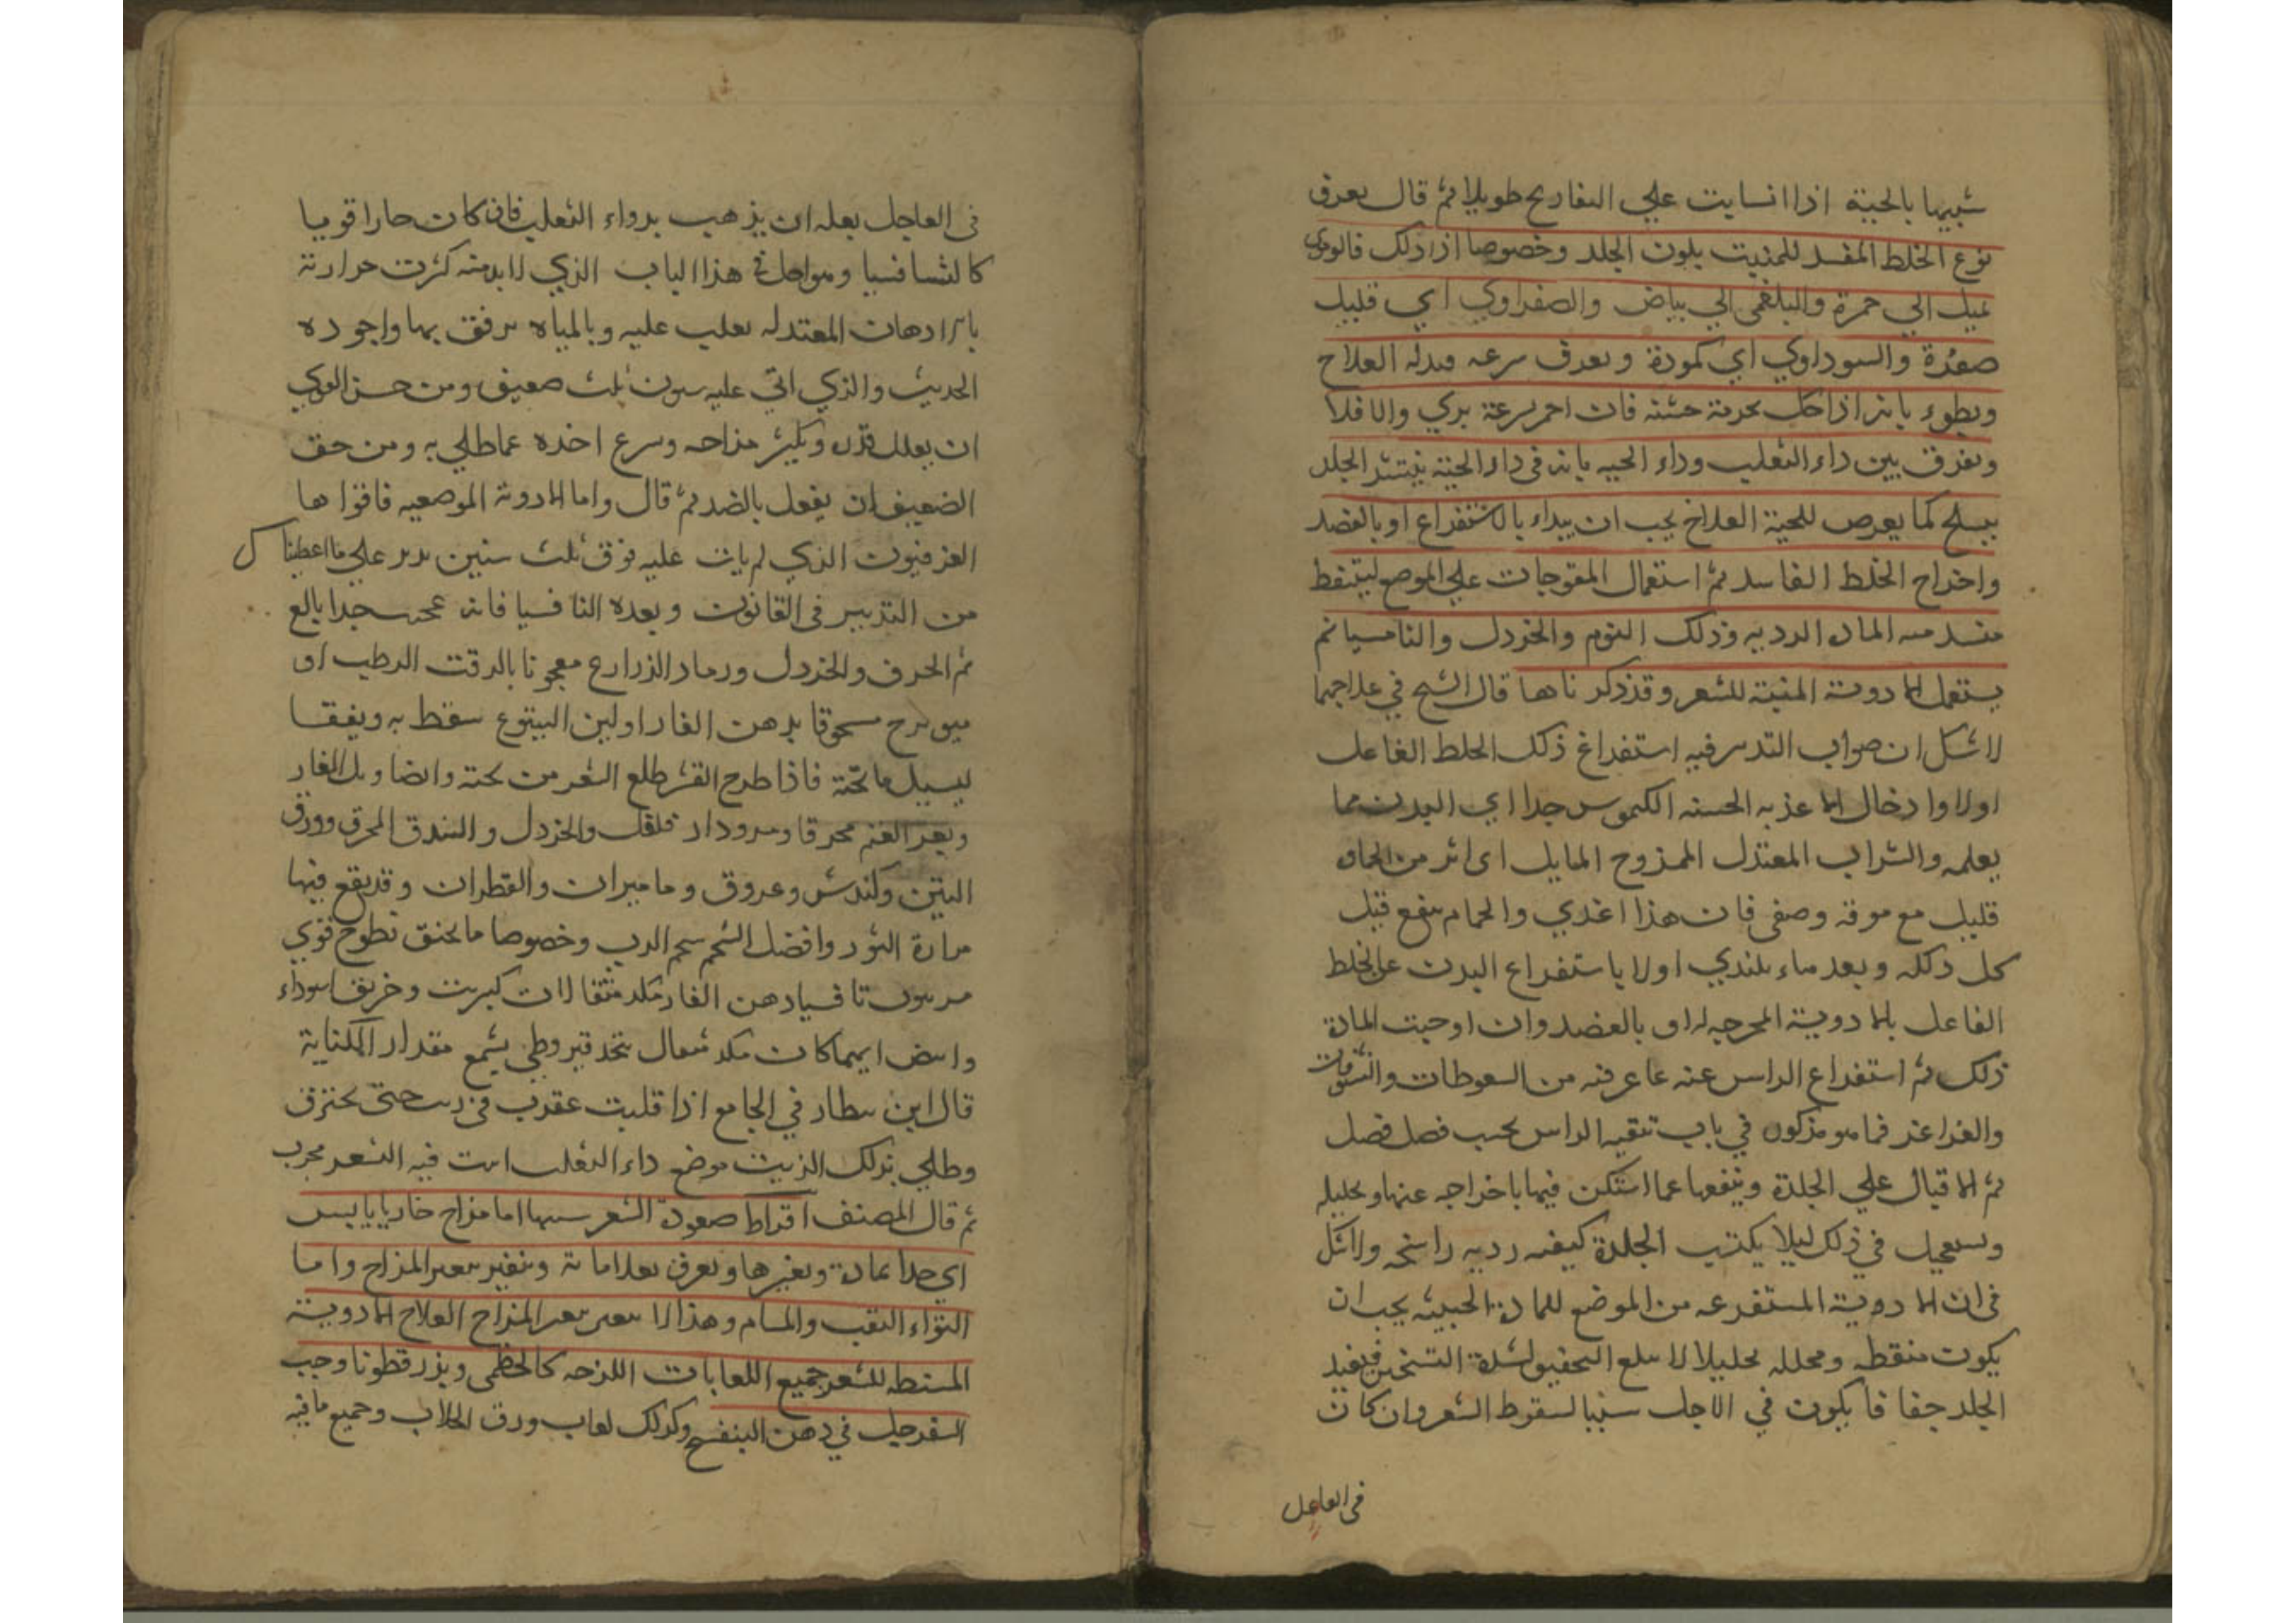 شبيها بالحية اذا انسابت علي التعاريج طويلا ثم قال يعرف
نوع الخلط المفسد للمنبت بلون الجلد وخصوصا اذا دلك فالدموي
يميل الي حمرة والبلغمي الي بياض والصفراوي اي قليل
صفرة والسوداوي اي كمودة ويعرف سرعه قبوله العلاج
وبطوء بانه اذا حك بخرقة خشنه فان احمر بسرعة بري والا فلا
ويفرق بين داء الثعلب وداء الحيه بانه في داء الحية ينتثر الجلد
ينسلخ كما يعرض للحية العلاج يجب ان يبداء بالاستفراغ او بالفصد
واخراج الخلط الفاسد ثم استعمال المقرحات علي الموضع ليتنفط
المادة الرديه وذلك الثوم والخردل والتافسيا ثم
يستعمل الادوية المنبتة للشعر وقد ذكرناها قال الشيخ في علاجهما
لا شك ان صواب التدبير فيه استفراغ ذلك الخلط الفاعل
اولا وادخال الاغذيه الحسنه الكيموس جدا اي البدن مما
يعلمه والشراب المعتدل الممزوج المايل
قليل مع موقه وصفي فان هذا اغذي والحمام ينفع قبل
كل ذلك وبعد اولا باستفراغ البدن عن الخلط
الفاعل بالادوية المخرجه له او بالفصد وان اوجبت المادة
ذلك ثم استفراغ الراس عنه بما عرفته من السعوطات والنشوقات
والغراغر فما هو مذكور في باب تنقيه الراس بحسب فصل فصل
ثم الاقبال علي الجلدة وينفعها عما استكن فيها باخراجه عنها وتحليله
ويستعجل في ذلك ليلا يكتسب الجلدة كيفيه رديه راسخه ولا شك
في ان الادوية المستفرغه من الموضع للمادة الخبيثه يجب ان
يكون منفطه ومحلله تحليلا لا يبلغ التجفيف لشدة التسخين فيفيد
الجلد جفافا يكون في الاجل سببا لسقوط الشعر وان كان
في العاجل
في العاجل بعله ان يذهب بدواء الثعلب فان كان حارا قويا
كالثسافسيا وهو اصل في هذا الباب الذي لا بد منه كثرت حرارته
بالادهان المعتدله يغلب عليه وبالمياه يرفق بها واجوده
الحديث والذي اتي عليه سنون ثلث ضعيف ومن حسن القوي
ان يقلل قدره ويكثر مزاجه ويسرع اخذه عما طلي به ومن حق
الضعيف ان يفعل بالضد ثم قال واما الادوية الموضعيه فاقواها
الفرفيون الذي لم يات عليه فوق ثلث سنين يدبر علي ما اعطيناك
من التدبير في القانون وبعده التافسيا فانه عجيب جدا بالع
ثم الحرف والخردل ورماد الذراريح معجونا بالزفت الرطب او
ميويزج مسحوقا بدهن الغار او لبن اليتوع سقط به ويفقا
ليسيل ما تحته فاذا طرح القشر طلع الشعر من تحته وايضا وبل الفار
وبعر الغنم محرقا فلفل والخردل والبندق المحرق وورق
التين وكندش وعروق وماميران والقطران وقد يقع فيها
مرارة الثور وافضل الشحم شحم الدب وخصوصا ما يخنق
تافسيا دهن الغار مثقالان كبريت وخربق سوداء
وابيض ايهما كان يتخذ قيروطي بشمع مقدار الكفاية
قال ابن بيطار في الجامع اذا قليت عقرب في زيت حتي يحترق
وطلي بذلك الزيت موضع داء الثعلب انبت فيه الشعر مجرب
ثم قال المصنف افراط جعودة الشعر سببها اما مزاج حار يابس
اي جدا بمادة وبغيرها ويعرف بعلاماته ويتغير بتغير المزاج واما
التواء الثقب والمسام وهذا لا يتغير بتغير المزاج العلاج الادوية
المبسطه للشعر جميع اللعابات اللزجه كالخطمي وبزر قطونا وحب
السفرجل في دهن البنفسج وكذلك لعاب ورق الخلاف وجميع ما فيه